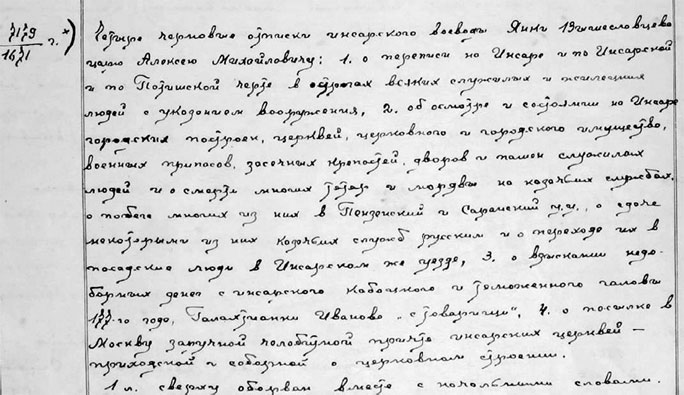 7179
1671 г. х)
Четыре черновые отписки инсарского воеводы Яким Вышеславцева
царю Алексею Михайловичу: 1. о переписи на Инсаре и по Инсарской
и по Потишской черте в острогах всяких служилых и жилецких
людей с указанием вооружения, 2. об осмотре и состоянии на Инсаре
городских построек, церквей, церковного и городского имущества,
военных припасов, засечных крепостей, дворов и пашен служилых
людей и о смерти многих татар и мордвы на казачьих службах,
о побеге многих из них в Пензенский и Саранский у.у., о сдаче
некоторыми из них казачьих служб русским и о переходе их в
посадские люди в Инсарском же уезде, 3. о взыскании недо-
борных денег с инсарского кабацкого и таможенного головы
177-го года, Иванова "с товарищи", 4. о посылке в
Москву заручной челобитной причта инсарских церквей –
приходской и соборной о церковном строении.
1 л. сверху оборван вместе с начальными словами.